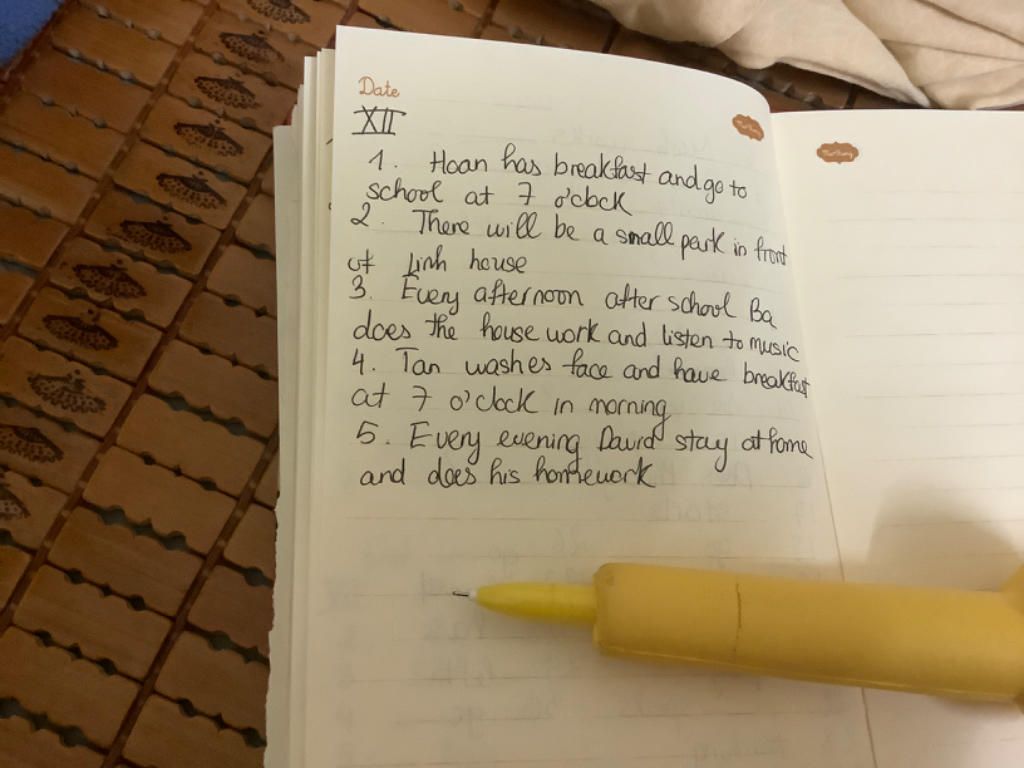 Date
XII
1. Hoan has breakfast and go to
school at 7 o'clock
2. There will be a small park in front
of Linh house
3. Every afternoon after school Ba
does the house work and listen to music
4. Tan washes face and have breakfast
at 7 o'clock in morning
5. Every evening David stay at home
and does his homework